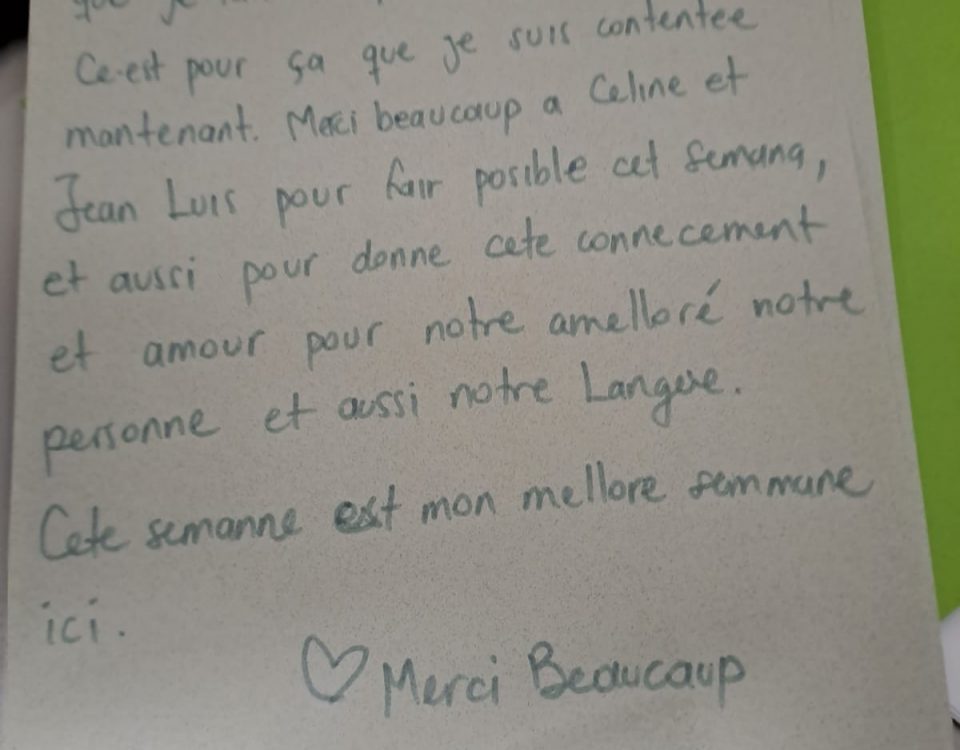 que je
Ce-est pour ça que je suis contentee
mantenant. Merci beaucaup a Celine et
Jean Luis pour fair posible cet semana,
et aussi pour donne cete connecement
et amour pour notre amelloré notre
personne et aussi notre Langue.
Cete semanne est mon mellore semmane
ici.
♡ Merci Beaucaup